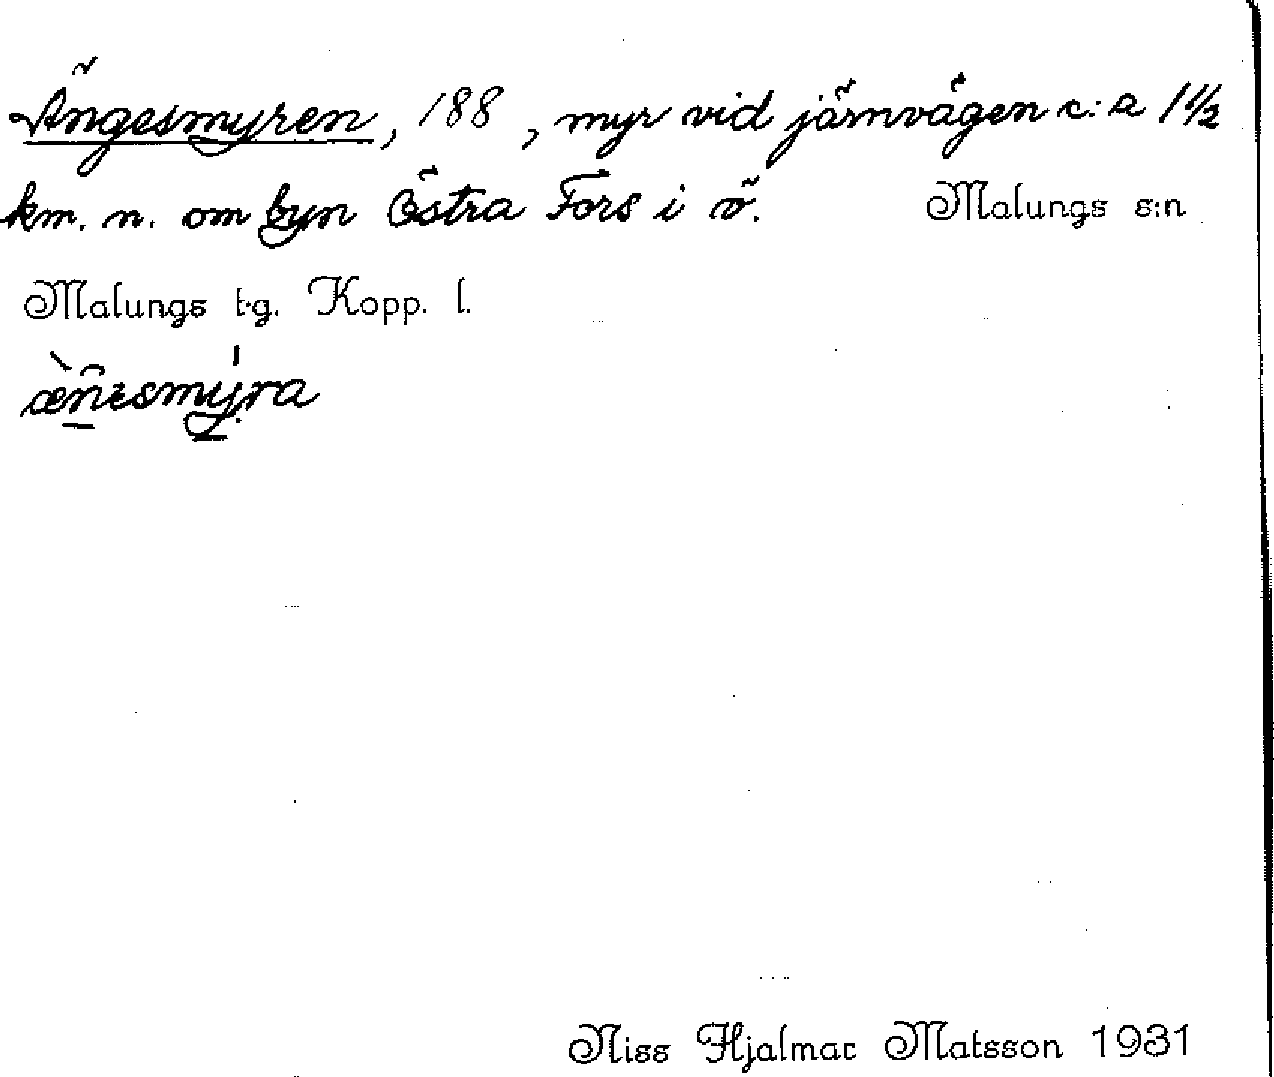 Ängesmyren, 188, myr vid järnvägen c:a 1 1/2
km. n. om byn Östra Fors i ö. Malungs s:n
Malungs t.g. Kopp. l.
æ̀n̂esmýra
Niss Hjalmar Matsson 1931